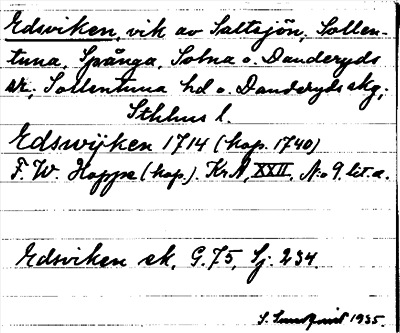 Edsviken, vik av Saltsjön, Sollen-
tuna, Spånga, Solna o. Danderyds
sr; Sollentuna hd o. Danderyds skg;
Sthlms l.
Edswijken 1714 (kop. 1740)
F. W. Hoppe (kop.). KrA, XXII, N:o 9. lit. a.
Edsviken ek, G. 75, Sj. 234.
S. Lundquist 1935.